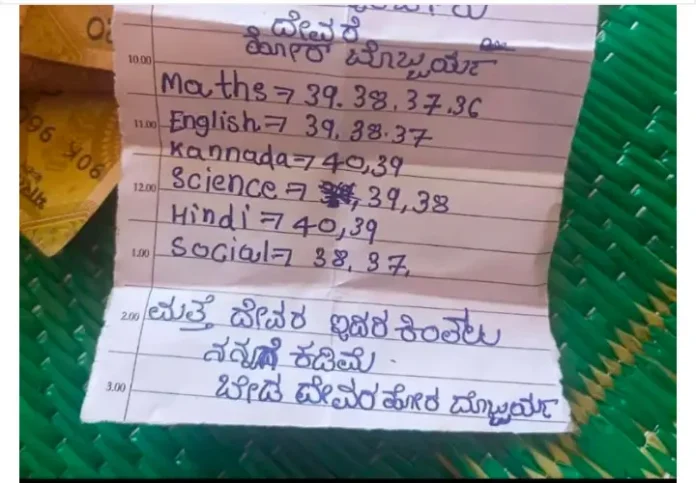 ದೇವರೆ
ಹೋರ ದೊಬ್ಬರ್ಯಾ
10.00
Maths ⇒ 39.38.37.36
11.00 English ⇒ 39.38.37
Kannada ⇒ 40,39
12.00 Science ⇒ 39,38
Hindi ⇒ 40,39
1.00 Social ⇒ 38.37.
2.00 ಮತ್ತೆ ದೇವರ ಇದರ ಕಿಂತಲು
ನನ್ನಗೆ ಕಡಿಮೆ.
3.00 ಬೇಡ ದೇವರ ಹೋರ ದೊಬ್ಬರ್ಯಾ